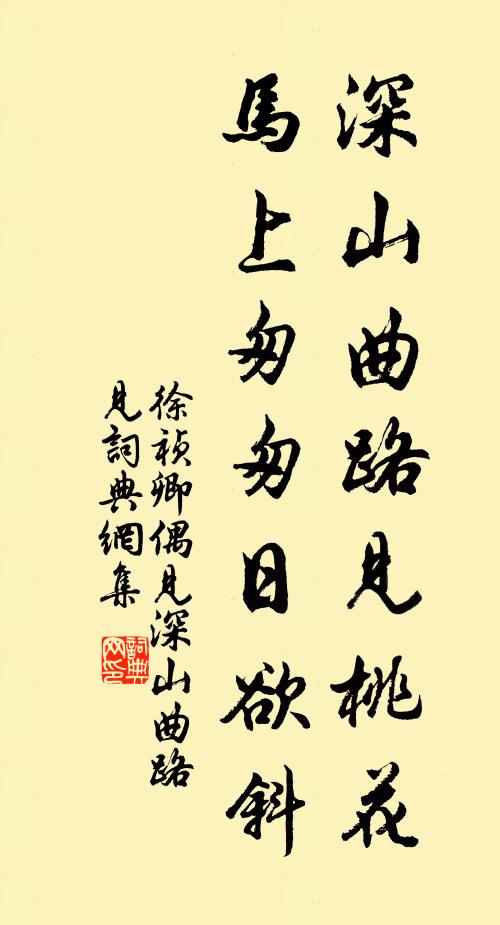 深山曲路見桃花
馬上匆匆日欲斜
徐禎卿偶見深山曲路
見詞典網集
詞典網印